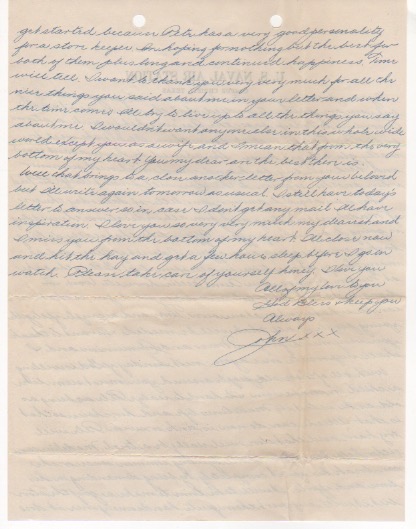 get started because Pete has a very good personality
for a store keeper. Im hoping for nothing but the best for
both of them plus long and continued happiness. Time
will tell. I want to thank you very very much for all the
nice things you said about me in your letter and when
the time comes Ill try to live up to all the things you say
about me. I wouldn't want any one else in this whole wide
world except you as a wife and I mean that from the very
bottom of my heart. You my dear are the best there is.
Well that brings to a close another letter from your beloved
but Ill write again tomorrow as usual. I still have today's
letter to answer so in case I dont get any mail Ill have
inspiration. I love you so very very much my dearest and
I miss you from the bottom of my heart. Ill close now
and hit the hay and get a few hours sleep before I go on
watch. Please take care of yourself honey. I love you
All of my love to you
God Bless & keep you
Always
John xxx